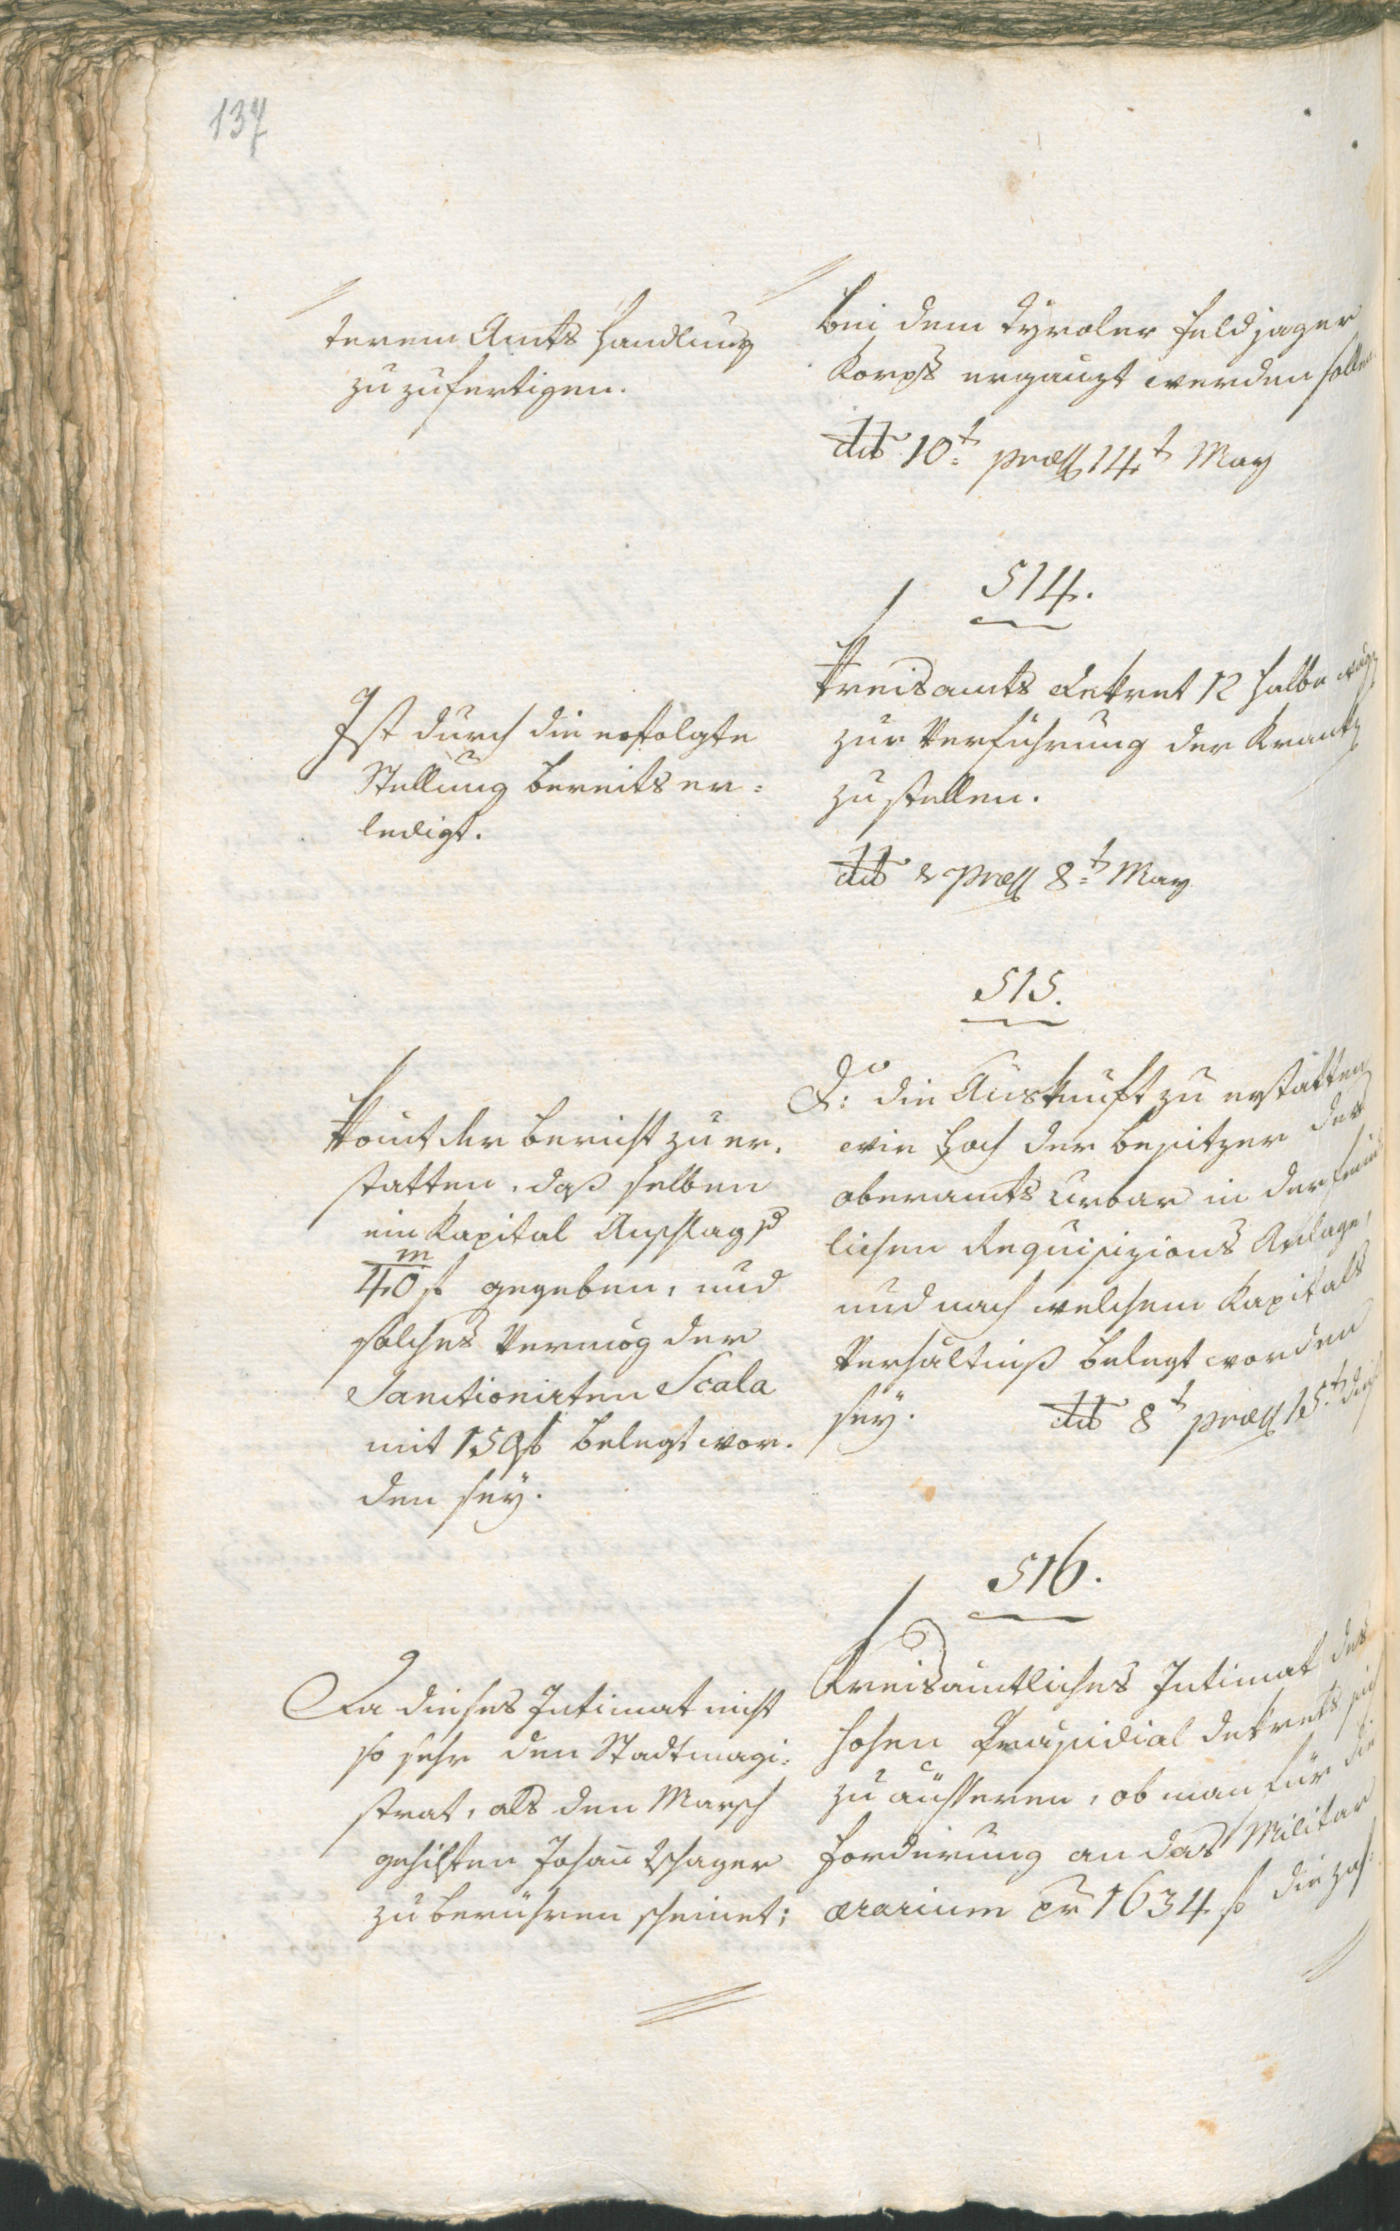 137
terem Amts Handlung
zu zufertigen.
bei dem Tyroler Feldjager
Korps ergänzt werden sollen
ddto 10t præs 14t May
514.
Ist durch die erfolgte
Stellung bereits er=
lediget.
Kreisamts Dekret 12 halbe
zur Verführung der Krank
zu stellen.
ddto & præs 8t May
515.
Komt der Bericht zu er.
statten, daß selben
ein Kapital Anschlag p
m
40 f gegeben, und
solches Vermög der
Sanctionirten Scala
mit 159f belegt wor.
den seÿ.
Do: die Auskunft zu erstatten
wie hoch der Besitzer des
oberamts Urbar in der feind
lichen Requisizions Anlage,
und nach welchem Kapitals
Verhältniß belegt worden
seÿ. ddto 8t præs 15t
516.
Da dieses Intimat nicht
so sehr den Stadtmagi=
strat, als den Marsch
gehilfen Johañ Tschager
zu berühren scheinet;
Kreisämtliches Intimat des
hohen Præsidial Dekrets sich
zu äusseren, ob man für die
Forderung an das Militar
ærarium pr 1634 f die Zah=